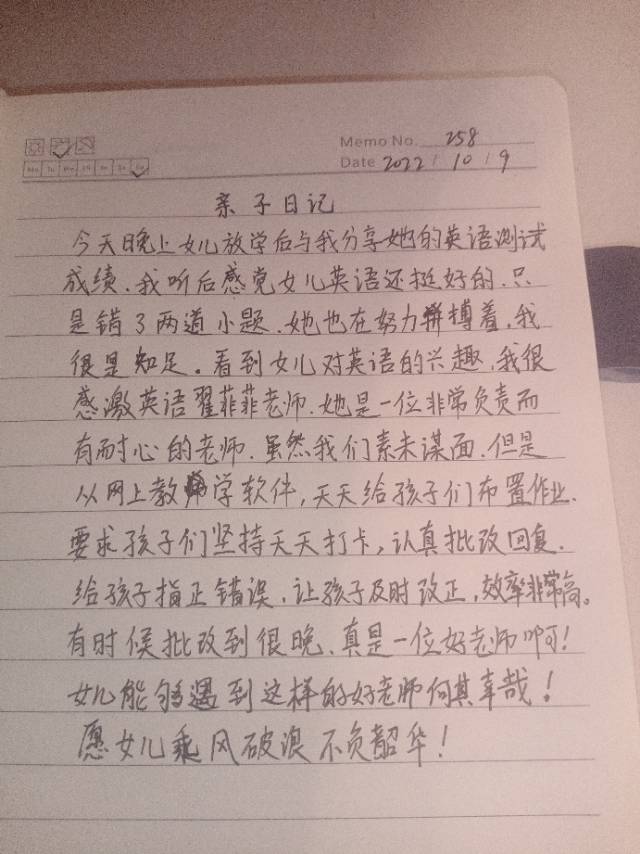 Memo No. 258
Mo Tu We Th Fr Sa Su
Date 2022 / 10 / 9
亲子日记
今天晚上女儿放学后与我分享她的英语测试
成绩、我听后感觉女儿英语还挺好的、只
是错了两道小题、她也在努力拼搏着、我
很是知足。看到女儿对英语的兴趣、我很
感激英语翟菲菲老师、她是一位非常负责而
有耐心的老师、虽然我们素未谋面、但是
从网上教学软件,天天给孩子们布置作业、
要求孩子们坚持天天打卡,认真批改回复、
给孩子指正错误、让孩子及时改正,效率非常高。
有时候批改到很晚、真是一位好老师啊!
女儿能够遇到这样的好老师何其幸哉!
愿女儿乘风破浪不负韶华!